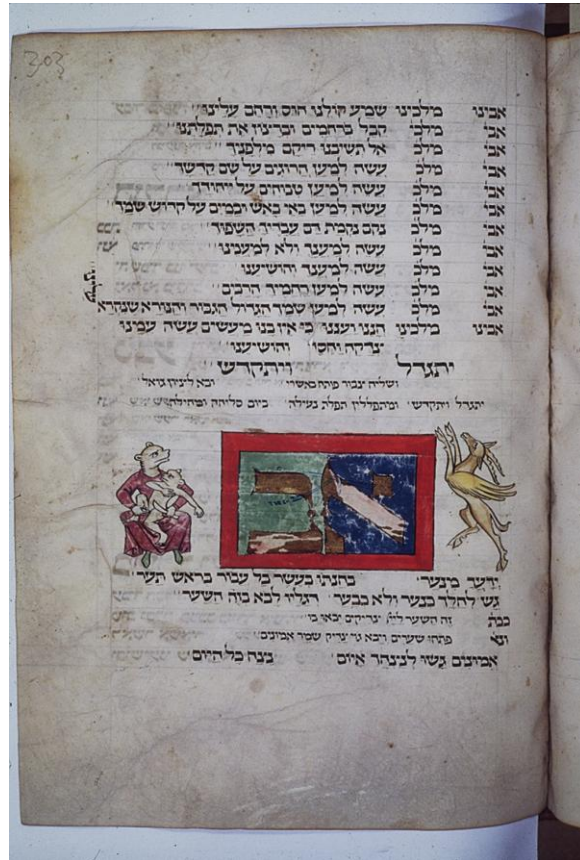 303
אבינו מלכינו שמע קולנו חוס ורחם עלינו
אבי מלכ קבל ברחמים וברצון את תפלתנו
אבי מלכ אל תשיבנו ריקם מלפניך
אבי מלכ עשה למען הרוגים על שם קדשך
אבי מלכ עשה למען טבוחים על ייחודך
אבי מלכ עשה למען באי באש ובמים על קדוש שמך
אבי מלכ נקם נקמת דם עבדיך השפוך
אבי מלכ עשה למענך ולא למענינו
אבי מלכ עשה למענך והושיענו
אבי מלכ עשה למען רחמיך הרבים
אבי מלכ עשה למען שמך הגדול הגבור והנורא שנקרא
עלינו
אבינו מלכינו חננו ועננו כי אין בנו מעשים עשה עמנו
צדקה וחסד והושיענו
יתגדל ויתקדש
ושליח ציבור פותח באשרי ובא לציון גואל
יתגדל ויתקדש ומתפללין תפלת נעילה ביום סליחה ומחילה
אב
ידעך מנער בחנתו בעשר בל עבור בראש תער
גש לחלך כנער ולא כבער רגליו לבא בזה השער
ככת זה השער ליי צדיקים יבאו בו
ונא פתחו שערים ויבא גוי צדיק שמר אמונים
אמונים גשו לנצחך איום נצח כל היום